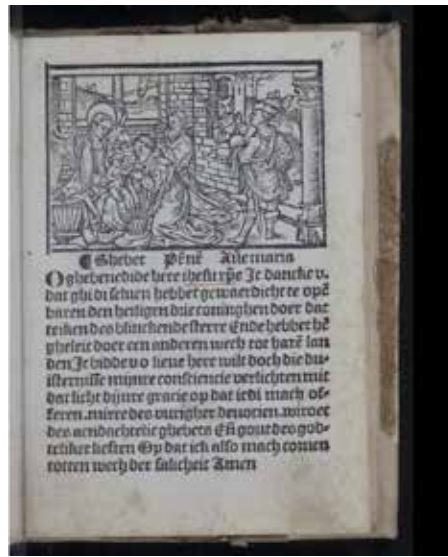 ¶ Ghebet Pr̄nr̄ Aue maria
O ghebenedide here ihesu xp̄e Ic dancke u.
dat ghi di seluen hebbet gewaerdicht te opē
baren den heiligen drie coninghen doer dat
teiken des blinckende sterre Ende hebbet hē
gheleit doer een anderen wech tot harē lan
den Ic bidde v o lieue here wilt doch die du-
isternisse mijnre consciencie verlichten mit
dat licht dijnre gracie op dat ic di mach of-
feren .mirre des vurigher deuocien. wiroec
des aendachtelic ghebets Eñ gout des god-
teliker lieften Op dat ick also mach comen
totten wech der salicheit Amen